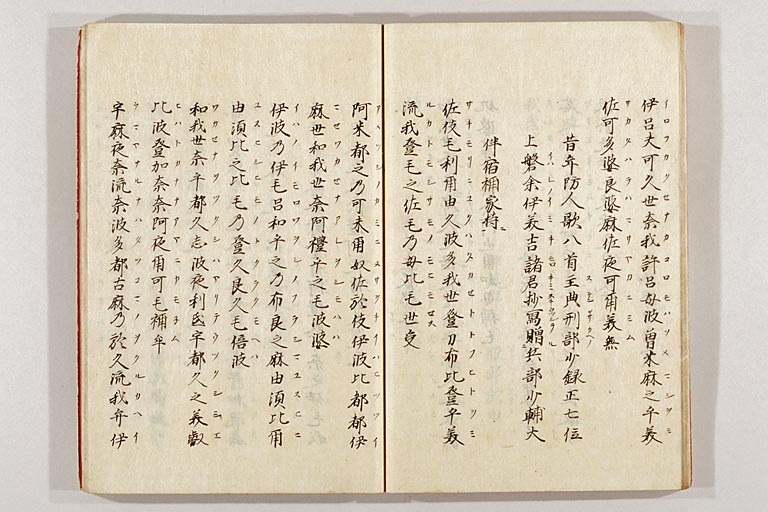 伊呂夫可久世奈我許呂母波曽米麻之乎美
佐可多婆良婆麻佐夜可爾美無
昔年防人歌八首主典刑部少録正七位
上磐余伊美吉諸君抄寫贈兵部少輔大
伴宿禰家持
佐伎毛利爾由久波多我世登刀布比登乎美
流我登毛之佐毛乃母比毛世受
阿米都之乃可未爾奴佐於伎伊波比都都伊
麻世和我世奈阿禮乎之毛波婆
伊波乃伊毛呂和乎之乃布良之麻由須比爾
由須比之比毛乃登久良久毛倍波
和我世奈乎都久志波夜利氐宇都久之美叡
比波登加奈奈阿夜爾可毛禰牟
宇麻夜奈流奈波多都古麻乃於久流我弁伊